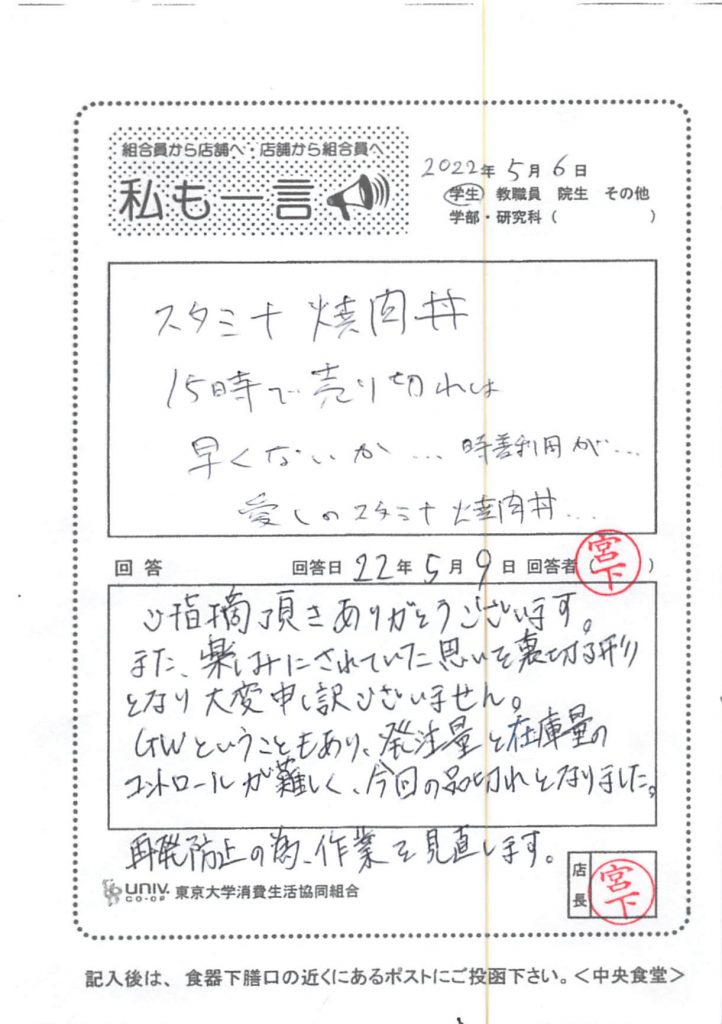 組合員から店舗へ・店舗から組合員へ
私も一言
2022年5月6日
学生 教職員 院生 その他
学部・研究科（ ）
スタミナ焼肉丼
15時で売り切れは
早くないか… 時差利用が…
愛しのスタミナ焼肉丼…
回答 回答日 22年5月9日 回答者（宮下）
ご指摘頂きありがとうございます。
また、楽しみにされていた思いを裏切る形り
となり大変申し訳ございません。
GWということもあり、発注量と在庫量の
コントロールが難しく、今回の品切れとなりました。
再発防止の為、作業を見直します。
店長 宮下
UNIV. CO-OP 東京大学消費生活協同組合
記入後は、食器下膳口の近くにあるポストにご投函下さい。＜中央食堂＞